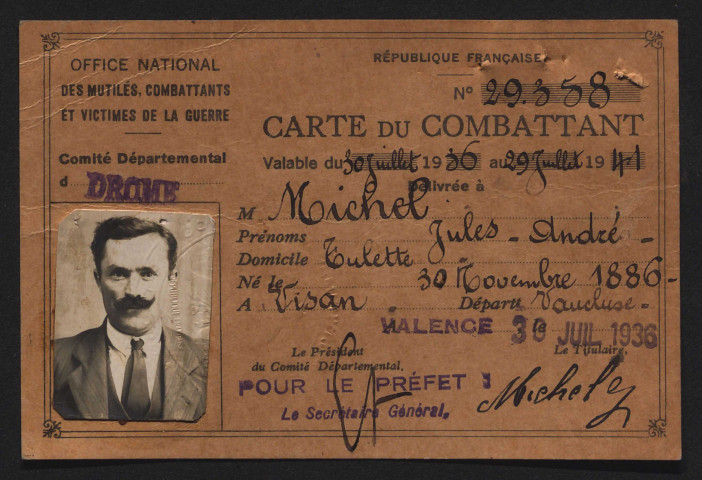 OFFICE NATIONAL
DES MUTILÉS, COMBATTANTS
ET VICTIMES DE LA GUERRE
Comité Départemental
d DROME
RÉPUBLIQUE FRANÇAISE
N° 29.358
CARTE DU COMBATTANT
Valable du 30 Juillet 1936 au 29 Juillet 1941
Délivrée à
M Michel
Prénoms Jules - André -
Domicile Tulette
Né le 30 Novembre 1886 -
A Visan - Départt Vaucluse -
VALENCE le 30 JUIL 1936
Le Président
du Comité Départemental,
Le Titulaire,
POUR LE PRÉFET :
Le Secrétaire Général,
Michel